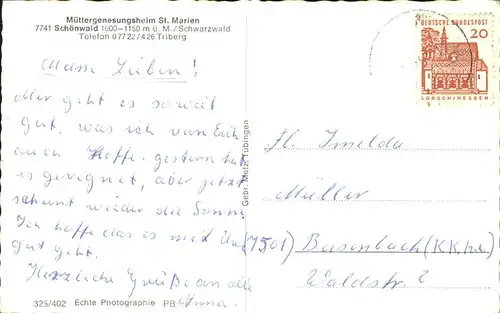 Müttergenesungsheim St. Marien
7741 Schönwald 1000–1150 m ü. M./Schwarzwald
Telefon 07722/426 Triberg
Meine Lieben!
Mir geht es soweit
gut, was ich von Euch
auch hoffe. gestern hat
es geregnet, aber jetzt
scheint wieder die Sonne
Ich hoffe das es mit
gut geht.
Herzliche Grüße an alle
Anna.
325/402 Echte Photographie PB
Gebr. Metz, Tübingen
DEUTSCHE BUNDESPOST
20
LORSCH/HESSEN
Fl. Imelda
Müller
(7501) Busenbach (Kr. Khe)
Waldstr. 2